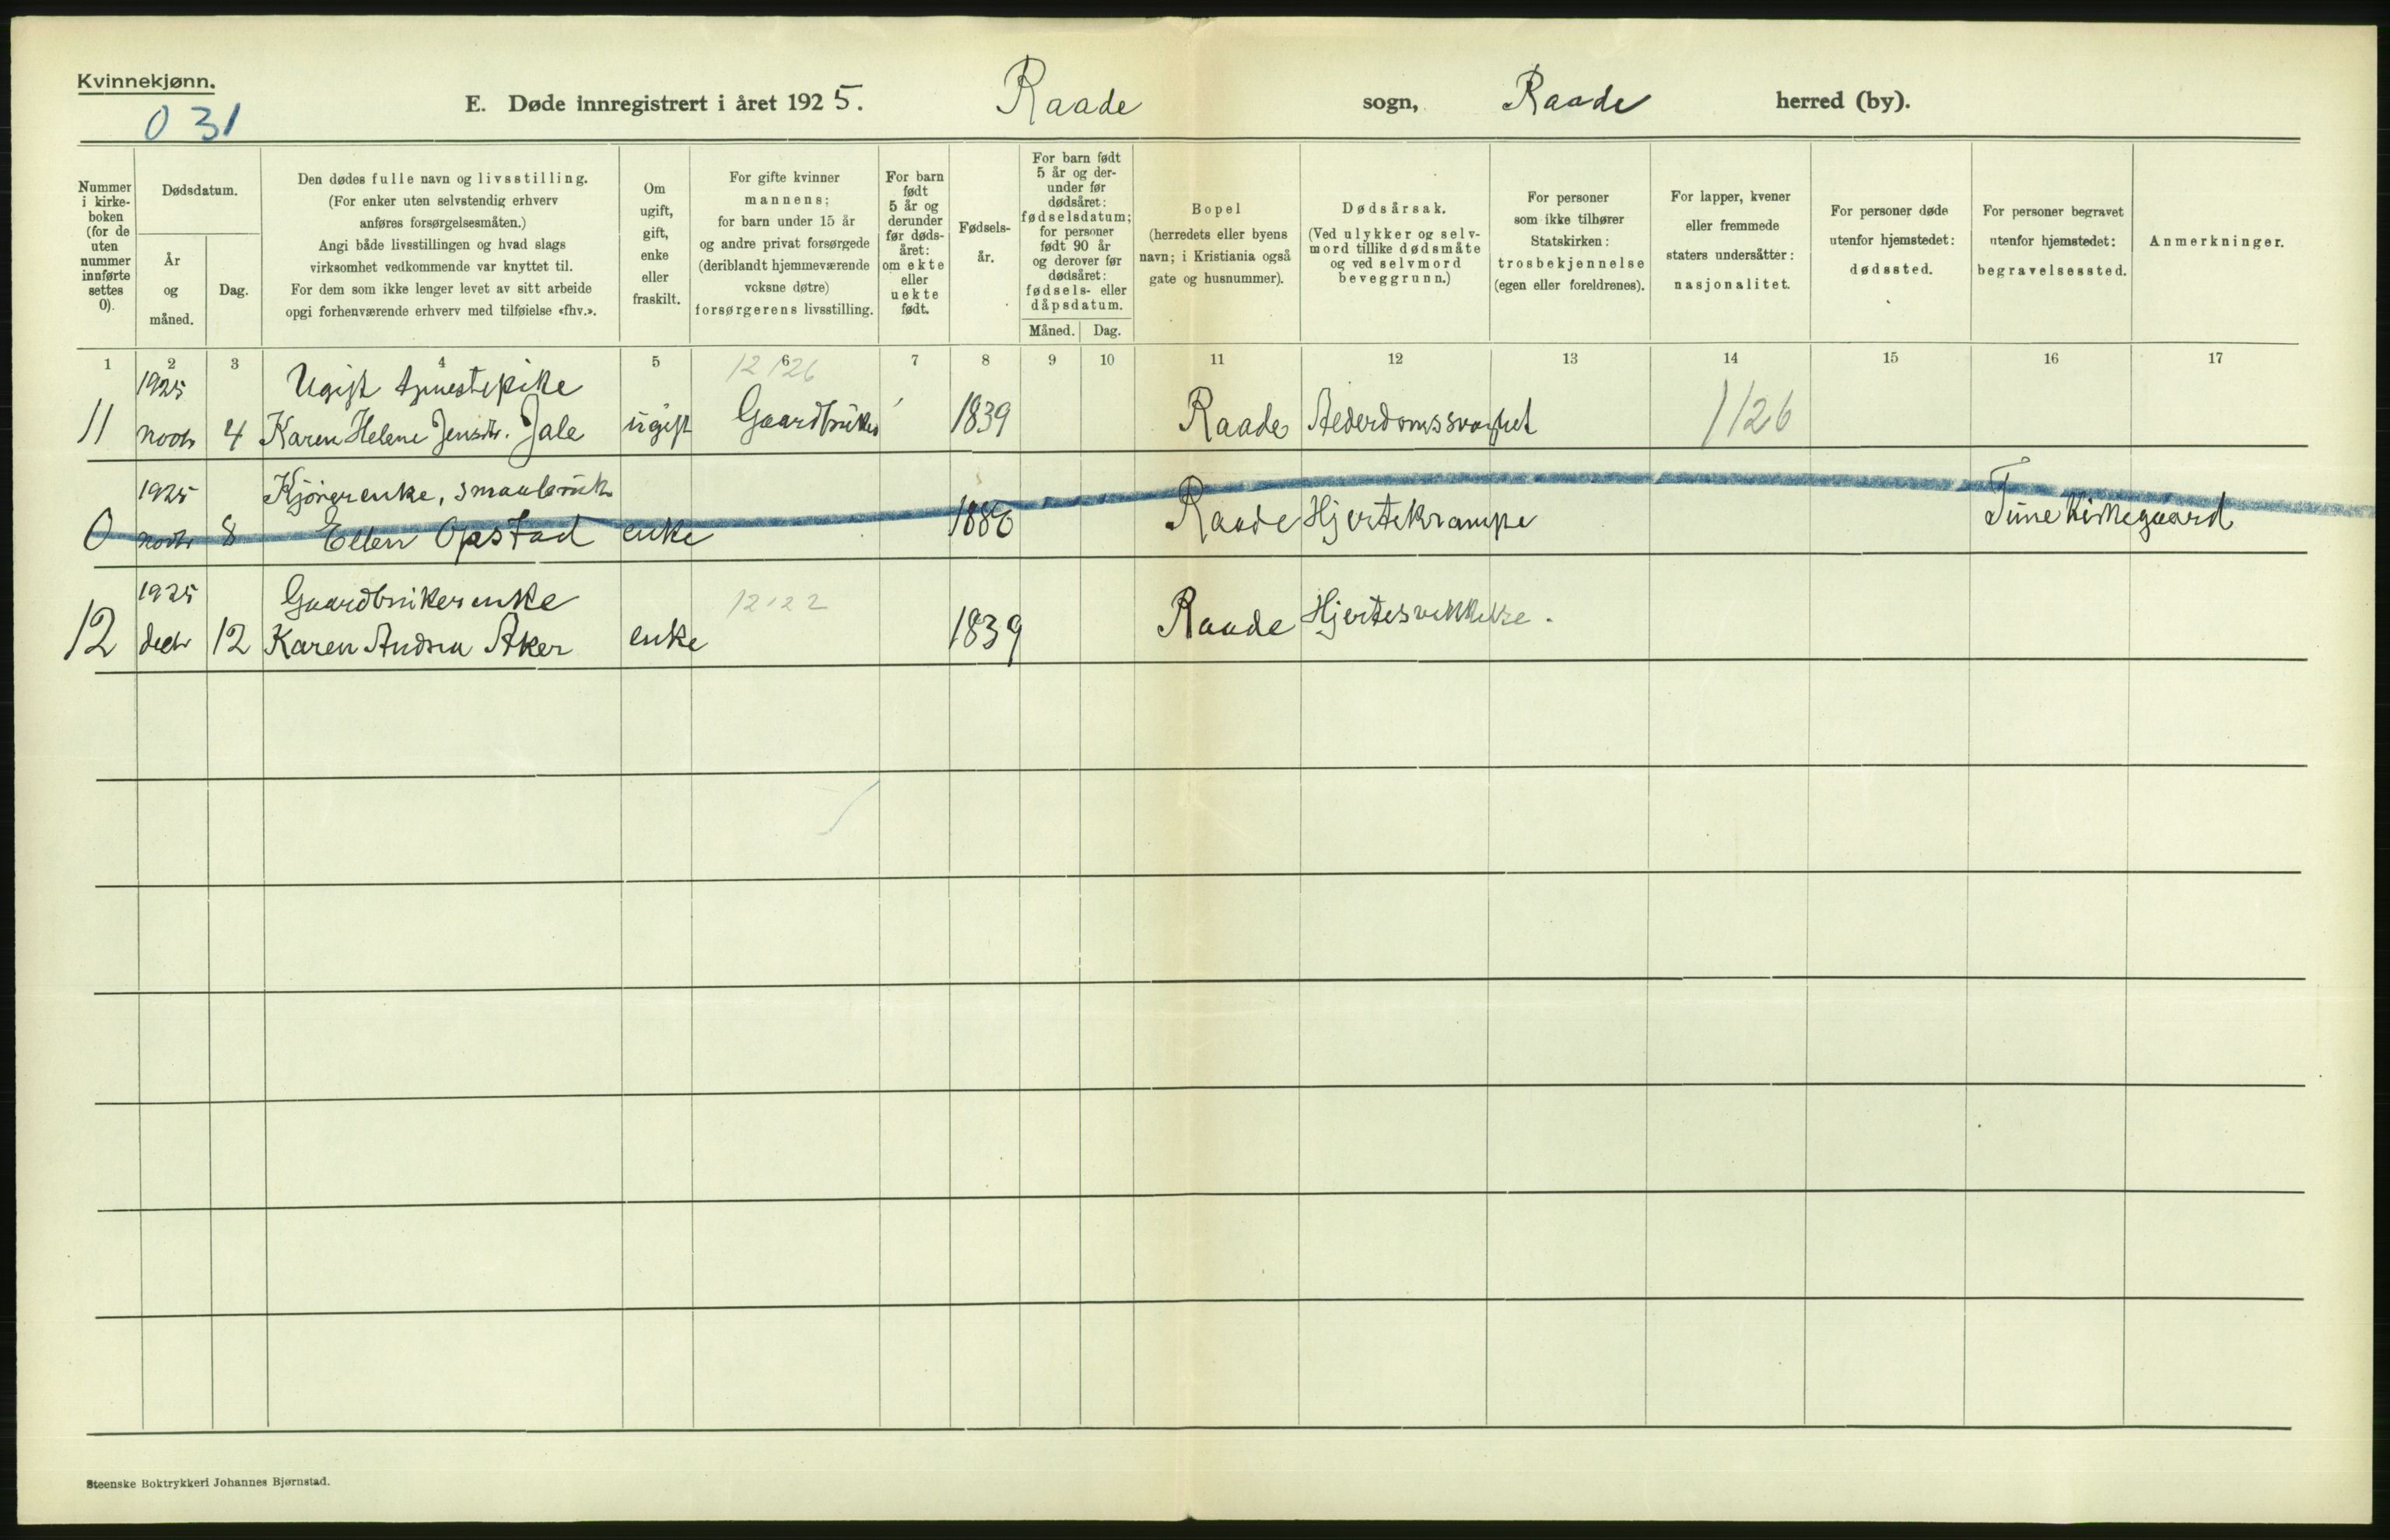 Kvinnekjønn.
0 31
E. Døde innregistrert i året 1925. Raade sogn, Raade herred (by).
Nummer i kirke-boken (for de uten nummer innførte settes 0).
Dødsdatum.
År og måned.
Dag.
Den dødes fulle navn og livsstilling.
(For enker uten selvstendig erhverv
anføres forsørgelsesmåten.)
Angi både livsstillingen og hvad slags
virksomhet vedkommende var knyttet til.
For dem som ikke lenger levet av sitt arbeide
opgi forhenværende erhverv med tilføielse «fhv.».
Om
ugift,
gift,
enke
eller
fraskilt.
For gifte kvinner
mannens;
for barn under 15 år
og andre privat forsørgede
(deriblandt hjemmeværende
voksne døtre)
forsørgerens livsstilling.
For barn
født
5 år og
derunder
før døds-
året:
om ekte
eller
uekte
født.
Fødsels-
år.
For barn født
5 år og der-
under før
dødsåret:
fødselsdatum;
for personer
født 90 år
og derover før
dødsåret:
fødsels- eller
dåpsdatum.
Måned. Dag.
Bopel
(herredets eller byens
navn; i Kristiania også
gate og husnummer).
Dødsårsak.
(Ved ulykker og selv-
mord tillike dødsmåte
og ved selvmord
beveggrunn.)
For personer
som ikke tilhører
Statskirken:
trosbekjennelse
(egen eller foreldrenes).
For lapper, kvener
eller fremmede
staters undersåtter:
nasjonalitet.
For personer døde
utenfor hjemstedet:
dødssted.
For personer begravet
utenfor hjemstedet:
begravelsessted.
Anmerkninger.
1 2 3 4 5 6 7 8 9 10 11 12 13 14 15 16 17
1925 Ugift tjenestepike 12 126
11 novbr 4 Karen Helene Jensdtr. Jale ugift Gaardbruker 1839 Raade Alderdomssvakhet 1126
1925 Kjörerenke, smaabruk
0 novbr 8 Ellen Opstad enke 1886 Raade Hjertekrampe Tune Kirkegaard
1925 Gaardbrukerenke 12122
12 decbr 12 Karen Andrea Aker enke 1839 Raade Hjertesvekkelse.
Steenske Boktrykkeri Johannes Bjørnstad.